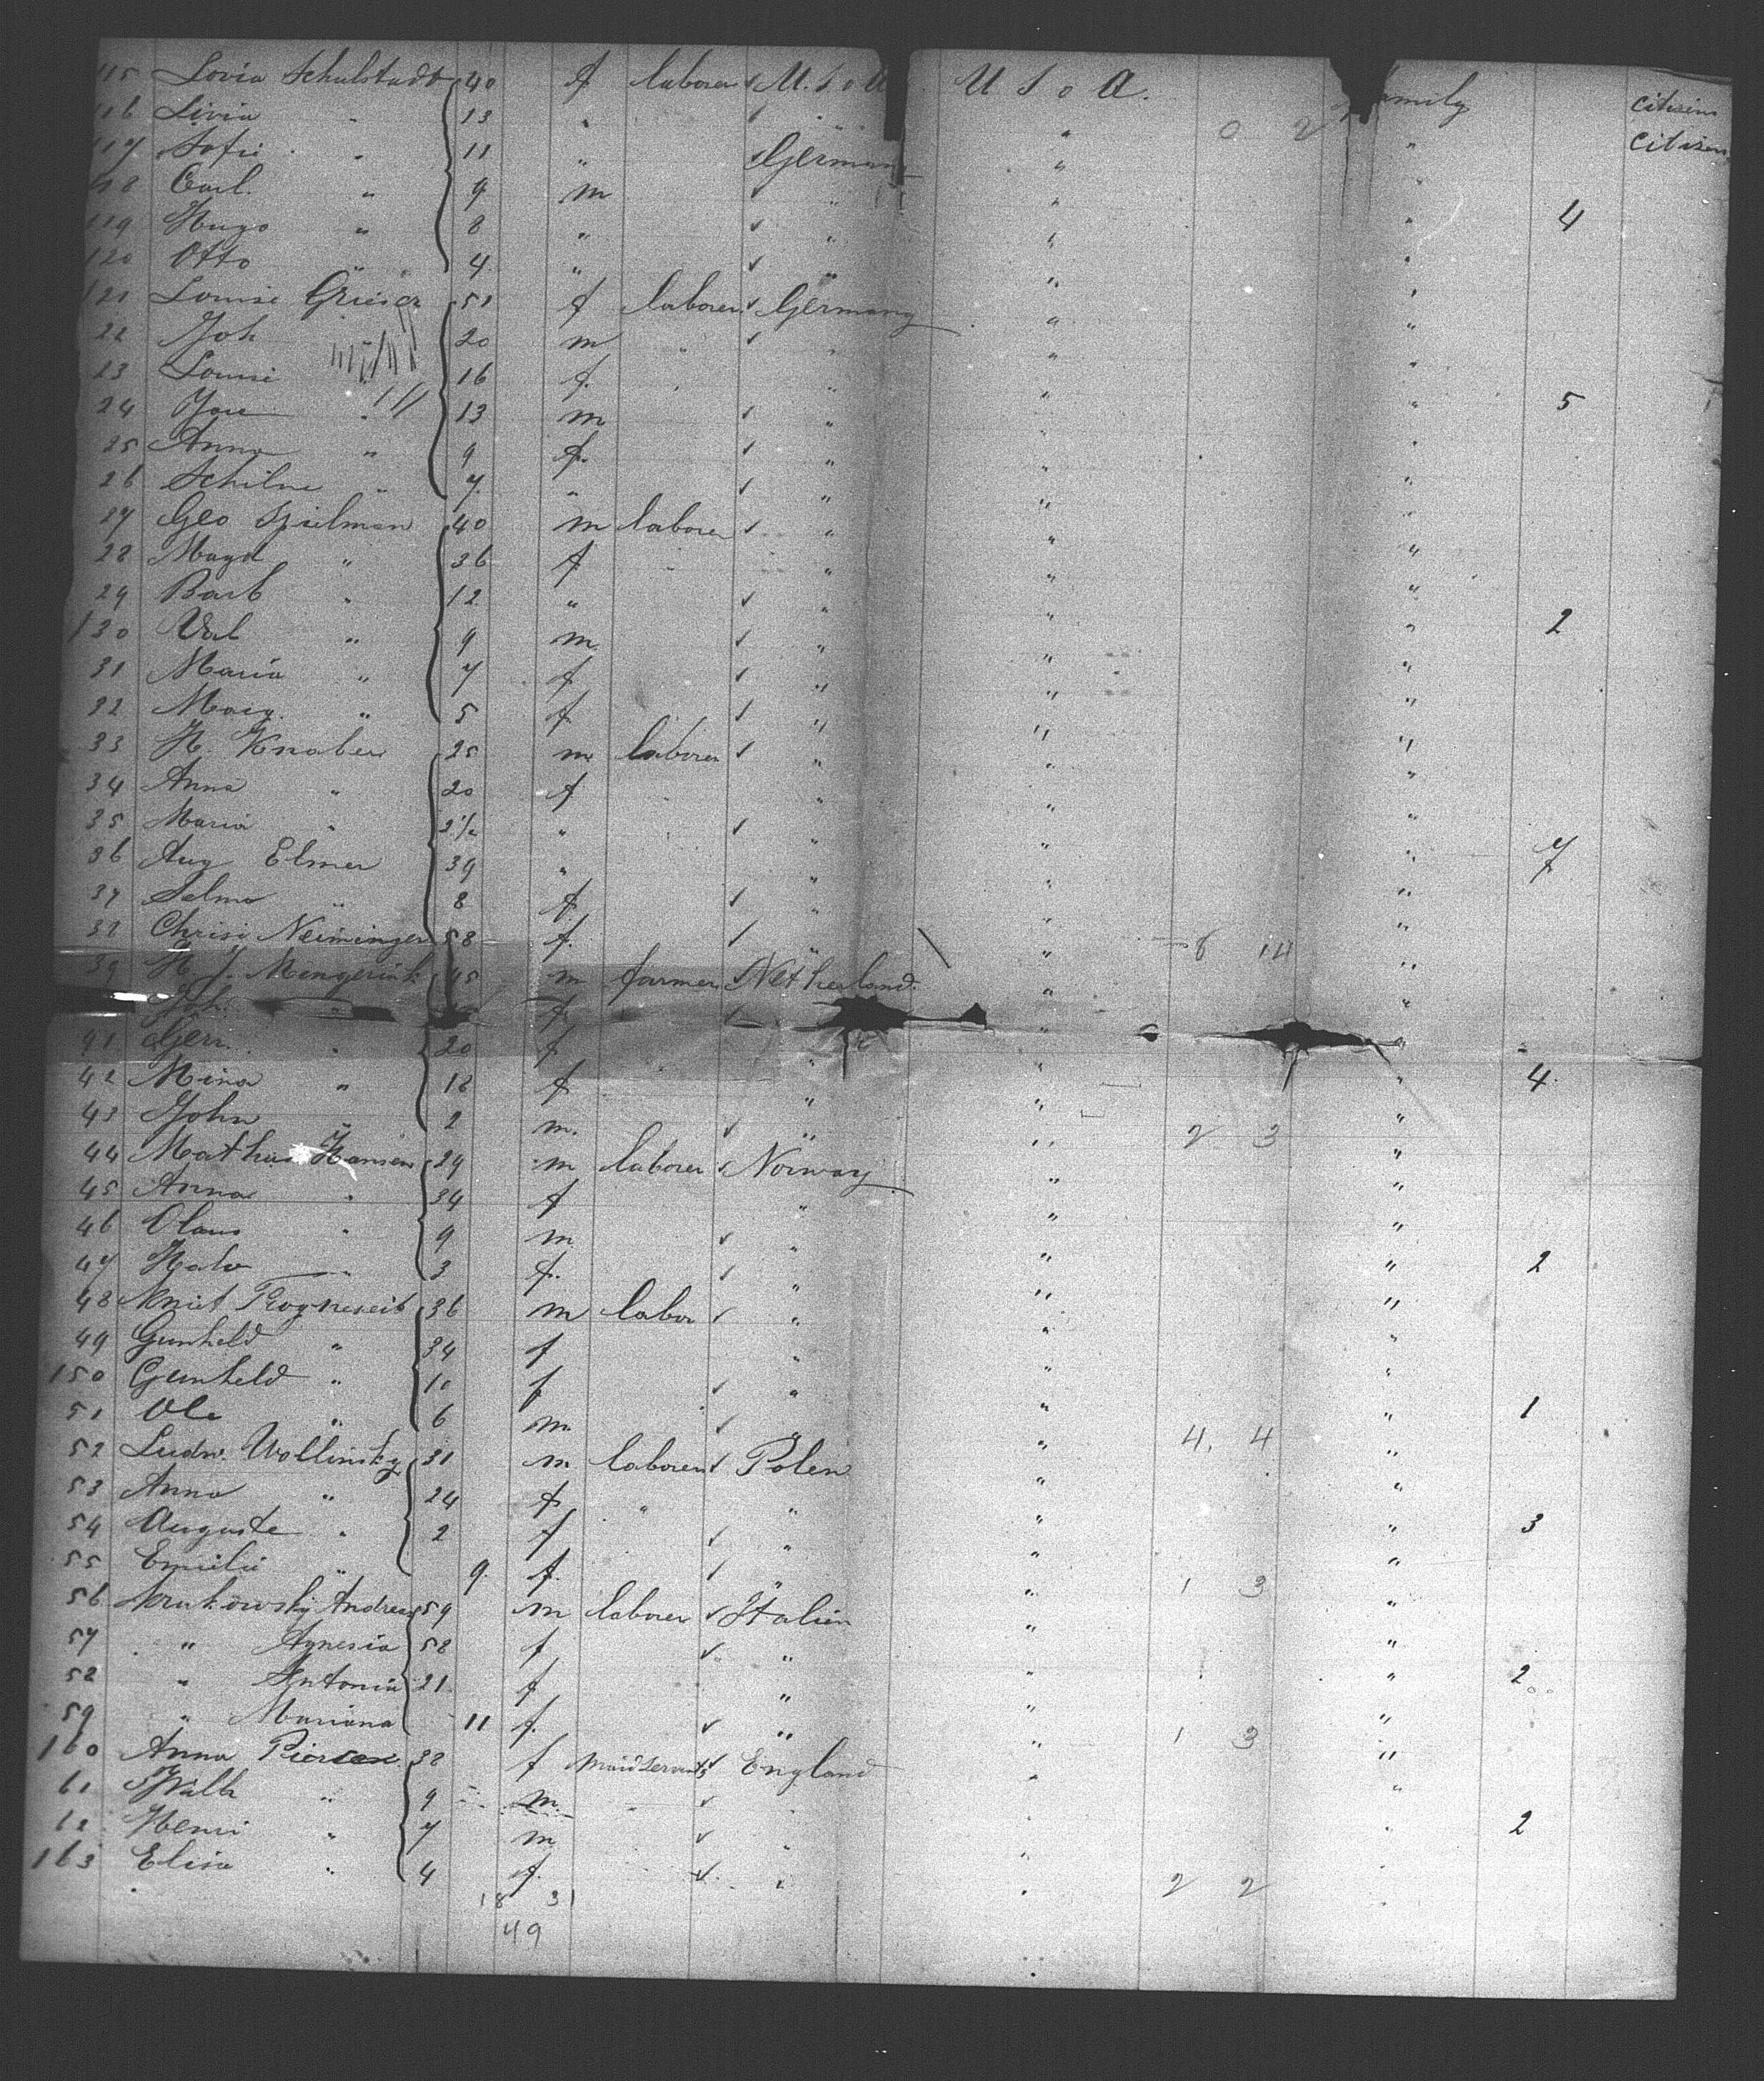 115 Lovia Schulstadt 40 f laborer U.S o A U S o A. Family citizen
116 Livia " 13 " " " 0 2 " citizen
117 Sofie " 11 " Germany " "
118 Carl " 9 m " " " 4
119 Hugo " 8 " " " "
120 Otto " 4 " " " "
121 Louise Grieser 51 f laborer Germany " "
22 Joh 20 m " " " "
23 Louise " 16 f. " " " "
24 " 13 m " " " 5
25 Anna " 9 f. " " "
26 " 7 " " " "
27 Geo Spielman 40 m laborer " " "
28 Magd " 36 f " " "
29 Barb " 12 " " " "
130 Val " 9 m " " " 2
31 Maria " 7 f " " "
32 Marg. " 5 f " " "
33 H. Knaber 25 m laborer " " "
34 Anna " 20 f " " "
35 Maria " " " " "
36 Aug Elmer 39 " " " " 7
37 Selma " 8 f " " "
38 Neiminger 58 f. " " 8 14 "
39 H. J. Mengerink 45 m farmer Netherland. " "
Joh. " f " "
41 Gerr. " 20 f " " "
42 Mina " 18 f " " " 4
43 John " 2 m. " " 2 3 "
44 Hansen 29 m laborer Norway " "
45 Anna " 34 f " " "
46 Olaus " 9 m " " "
47 " 3 f. " " " 2
48 36 m labor " " "
49 Gunheld " 34 f " " "
150 Gunheld " 10 f " " "
51 Ole " 6 m " " 4. 4 " 1
52 Ludw. Wollinsky 31 m laborer Polen " "
53 Anna " 24 f " " " "
54 Auguste " 2 f " " " 3
55 Emilie " 9. f. " " 1 3 "
56 Andreas 59 m laborer Italien " "
57 " Agnesia 58 f " " "
58 " Antonia 21 f " " " 2
59 " Mariana 11 f. " " 1 3 "
160 Anna 38 f maidservants England " "
61 " 9 m. " " "
62 Henri " 7 m " " " 2
163 Elisa " 4 f. " " 2 2 "
18 31
49